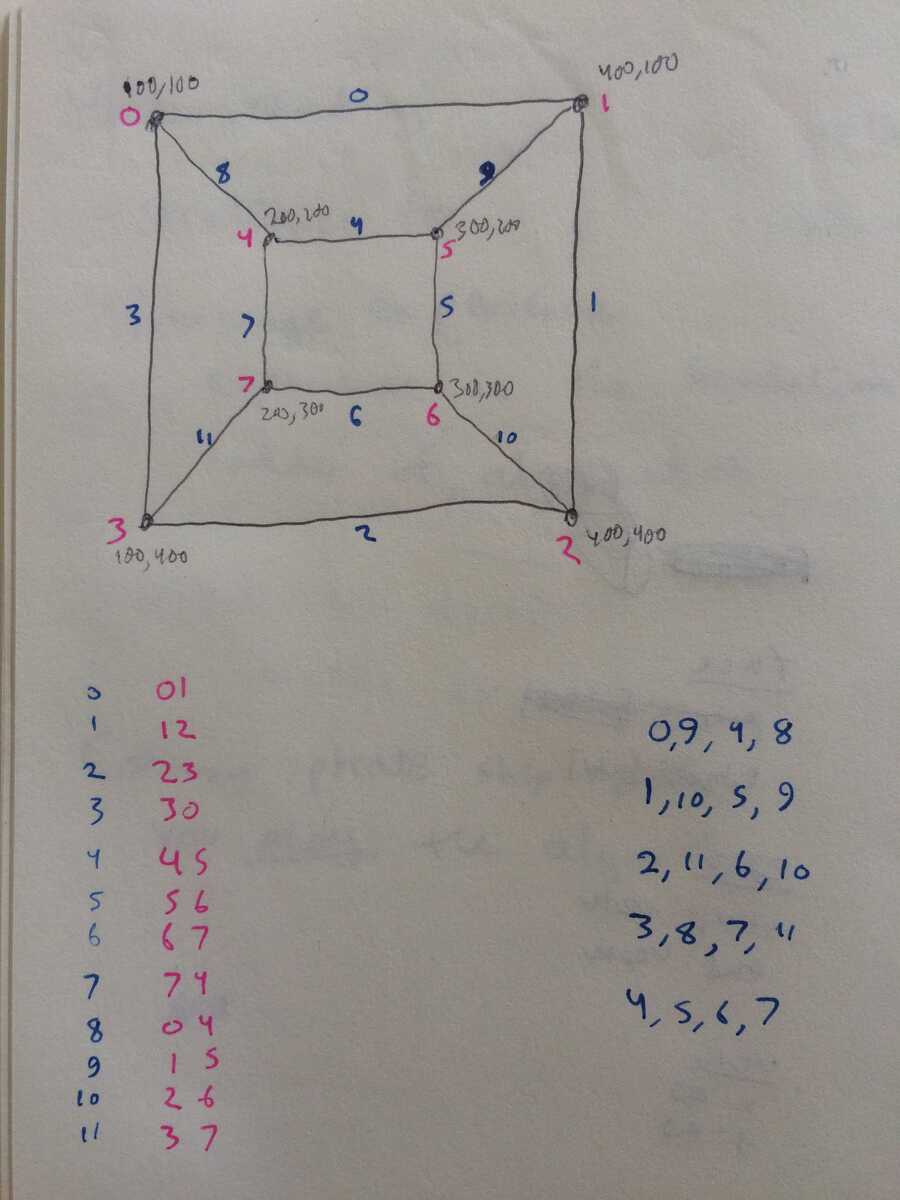 100,100
400,100
0
0
1
8
9
200,200
4
4
300,200
5
3
7
5
1
7
200,300
6
300,300
6
11
10
3
2
2
100,400
400,400
0 01
1 12
2 23
3 30
4 45
5 56
6 67
7 74
8 04
9 15
10 26
11 37
0,9,4,8
1,10,5,9
2,11,6,10
3,8,7,11
4,5,6,7